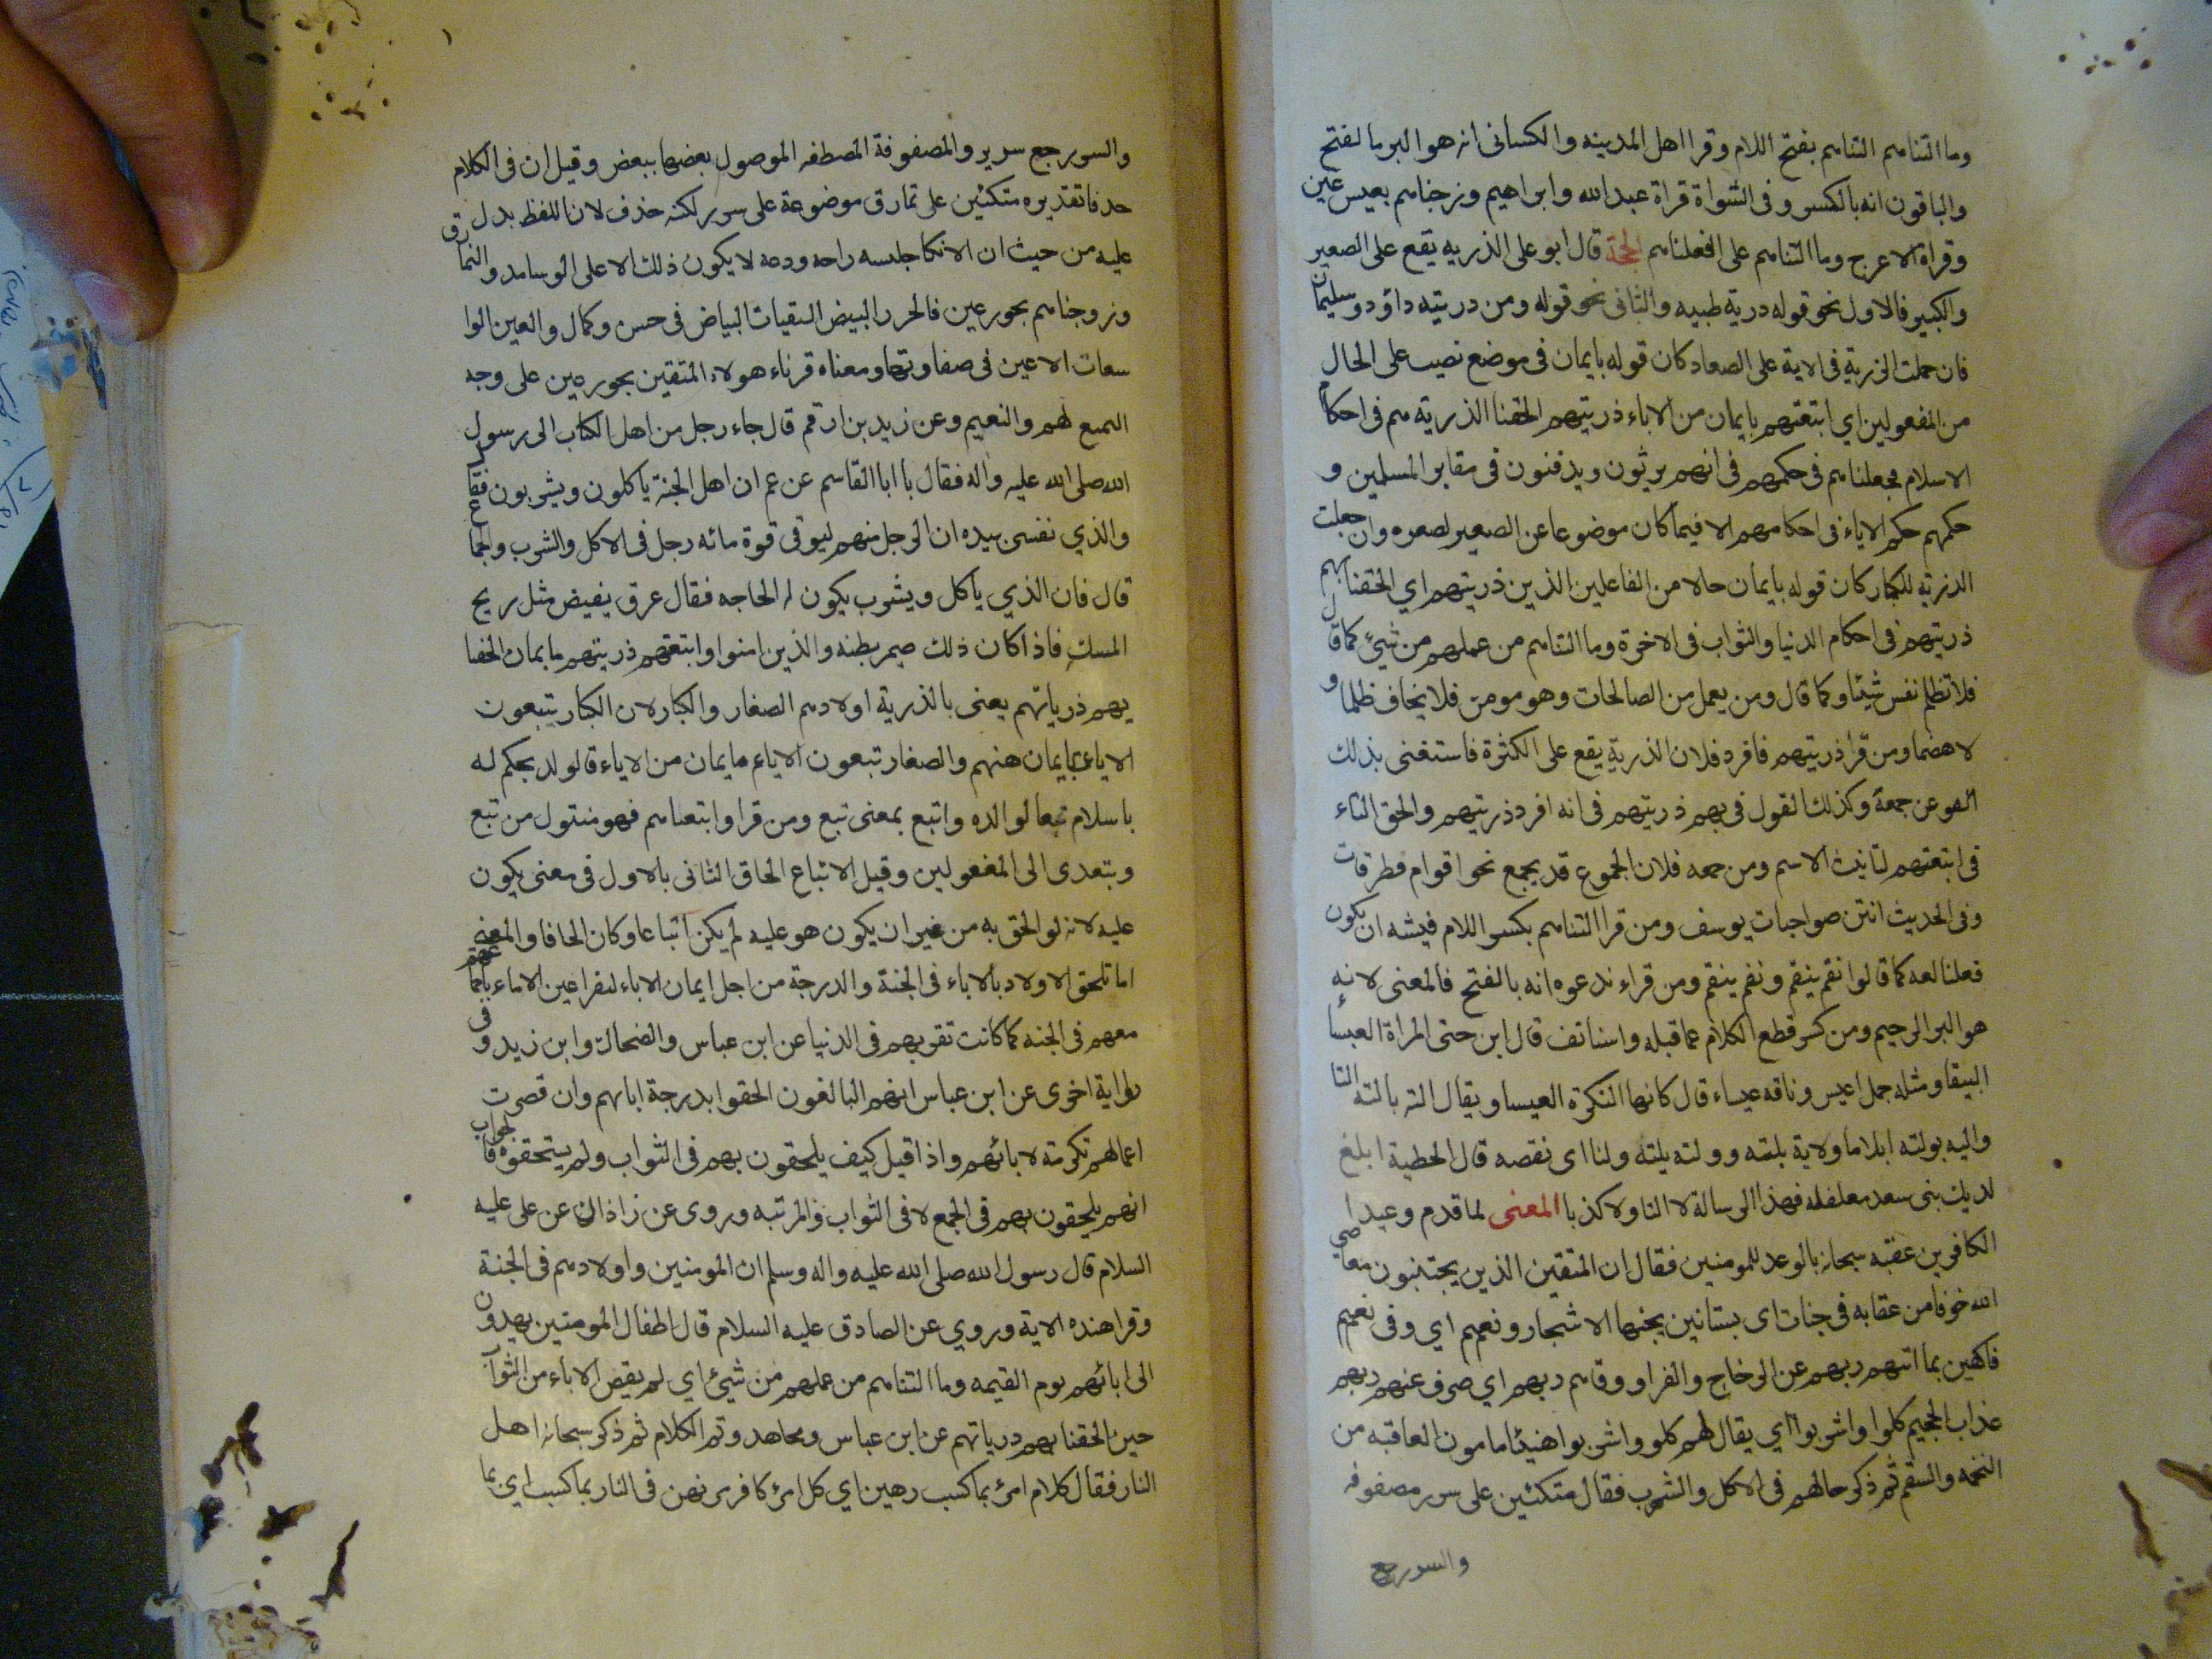 وما التناهم التناهم بفتح اللام وقرا اهل المدينه والكسائى انه هو البر بالفتح
والباقون انه بالكسر وفى الشواة قراة عبد الله وابراهيم وزجناهم بعيس عين
وقراة الاعرج وما التناهم على افعلناهم الحجة قال ابو على الذريه يقع على الصغير
والكبير فالاول نحو قوله درية طيبه والثانى نحو قوله ومن دريته داؤد وسليمان
فان حملت الذرية فى الاية على الصعاد كان قوله بايمان فى موضع نصب على الحال
من المفعولين اي ابتعتهم بايمان من الاباء ذريتهم الحقنا الذرية بهم فى احكام
الاسلام فجعلناهم فى حكمهم فى انهم يرثون ويدفنون فى مقابر المسلمين و
حكمهم حكم الاباء فى احكامهم الا فيما كان موضوعا عن الصعير لصعره وان جعلت
الذرية للكبار كان قوله بايمان حالا من الفاعلين الذين ذريتهم اي الحقنا بهم
ذريتهم فى احكام الدنيا والثواب فى الاخرة وما التناهم من عملهم من شئ كما قال
فلا تظلم نفس شيئا وكما قال ومن يعمل من الصالحات وهو مومن فلا يخاف ظلما و
لا هضما ومن قرا ذريتهم فافرد فلان الذرية يقع على الكثرة فاستغنى بذلك
عن جمعه وكذلك القول فى بهم ذريتهم فى انه افرد ذريتهم والحق التاء
فى ابتعتهم لتانيث الاسم ومن جمعه فلان الجموع قد يجمع نحو اقوام وطرقات
وفى الحديث انتن صواجبات يوسف ومن قرا التناهم بكسر اللام فيشبه ان يكون
فعلنا لعه كما قالوا نقم ينقم ونقم ينقم ومن قراء ندعوه انه بالفتح فالمعنى لانه
هو البر الرحيم ومن كسر قطع الكلام عما قبله واستانف قال ابن جنى المراة العيسا
البيضا ومثله جمل اعيس وناقه عيساء قال كانها البكرة العيسا ويقال الته يالته التا
واليه يولته ايلاتا ولاته يليته وولته يلته ولتا اى نقصه قال الحطيه ابلغ
لديك بنى سعد مغلغله فهذا الرسالة لا التا ولا كذبا المعنى لما قدم وعيدا
الكافرين عقبه سبحانه بالوعد للمومنين فقال ان المتقين الذين يجتنبون معاصى
الله خوفا من عقابه فى جنات اى بساتين يجنها الاشجار ونعيم اي وفى نعيم
فاكهين بما اتيهم ربهم عن الزجاج والفراء ووقاهم ربهم اي صرف عنهم ربهم
عذاب الجحيم كلوا واشربوا اي يقال لهم كلوو واشربوا هنيئا مامون العاقبه من
التخمه والسقم ثم ذكر حالهم فى الاكل والشرب فقال متكئين على سرر مصفوفه
والسرر جمع
والسرر جمع سرير والمصفوفة المصطفه الموصول بعضها ببعض وقيل ان فى الكلام
حدفا تقديره متكئين على نمارق موضوعة على سرر لكنه حذف لان اللفظ يدل
عليه من حيث ان الاتكا جلسه راحه ودعه لا يكون ذلك الا على الوسائد والنمارق
وزوجناهم بحور عين فالحور البيض النقيات البياض فى حسن وكمال والعين الوا
سعات الاعين فى صفا وبها ومعناه قرناء هولاء المتقين بحور عين على وجه
التمتع لهم والنعيم وعن زيد بن ارقم قال جاء رجل من اهل الكتاب الى رسول
الله صلى الله عليه واله فقال يا ابا القاسم تزعم ان اهل الجنة ياكلون ويشربون فقال
والذي نفسى بيده ان الرجل منهم ليوتى قوة مائه رجل فى الاكل والشرب والجماع
قال فان الذي ياكل ويشرب يكون له الحاجه فقال عرق يفيض مثل ريح
المسك فاذا كان ذلك ضمر بطنه والذين امنوا وابتعتهم ذريتهم بايمان الحقنا
بهم ذرياتهم يعنى بالذرية اولادهم الصغار والكبار لان الكبار يتبعون
الاباء بايمان منهم والصغار تبعون الاباء بايمان من الاباء فالولد يحكم له
باسلام تبعا لوالده واتبع بمعنى تبع ومن قرا وابتعناهم فهو منقول من تبع
ويتعدى الى المفعولين وقيل الاتباع الحاق الثانى بالاول فى معنى يكون
عليه لانه لو الحق به من غير ان يكون هو عليه لم يكن اتباعا وكان الحاقا والمعنى
انا نلحق الاولاد بالاباء فى الجنة والدرجة من اجل ايمان الاباء لتقر اعين الاباء باجتماعهم
معهم فى الجنه كما كانت تقر بهم فى الدنيا عن ابن عباس والضحاك وابن زيد وفى
رواية اخرى عن ابن عباس انهم البالغون الحقوا بدرجة ابائهم وان قصرت
اعمالهم تكرمة لابائهم واذا قيل كيف يلحقون بهم فى الثواب ولم يستحقوه فالجواب
انهم يلحقون بهم فى الجمع لا فى الثواب والمرتبه وروى عن زاذان عن على عليه
السلام قال رسول الله صلى الله عليه واله وسلم ان المومنين واولادهم فى الجنة
وقرا هنده الاية وروي عن الصادق عليه السلام قال اطفال المومنين يهدون
الى ابائهم يوم القيمه وما التناهم من عملهم من شيئ اي لم ينقص الاباء من الثواب
حين الحقنا بهم درياتهم عن ابن عباس ومجاهد وتم الكلام ثم ذكر سبحانه اهل
النار فقال كلام امرئ بما كسب رهين اي كل امرئ كافر مرتهن فى النار بما كسب اى بما